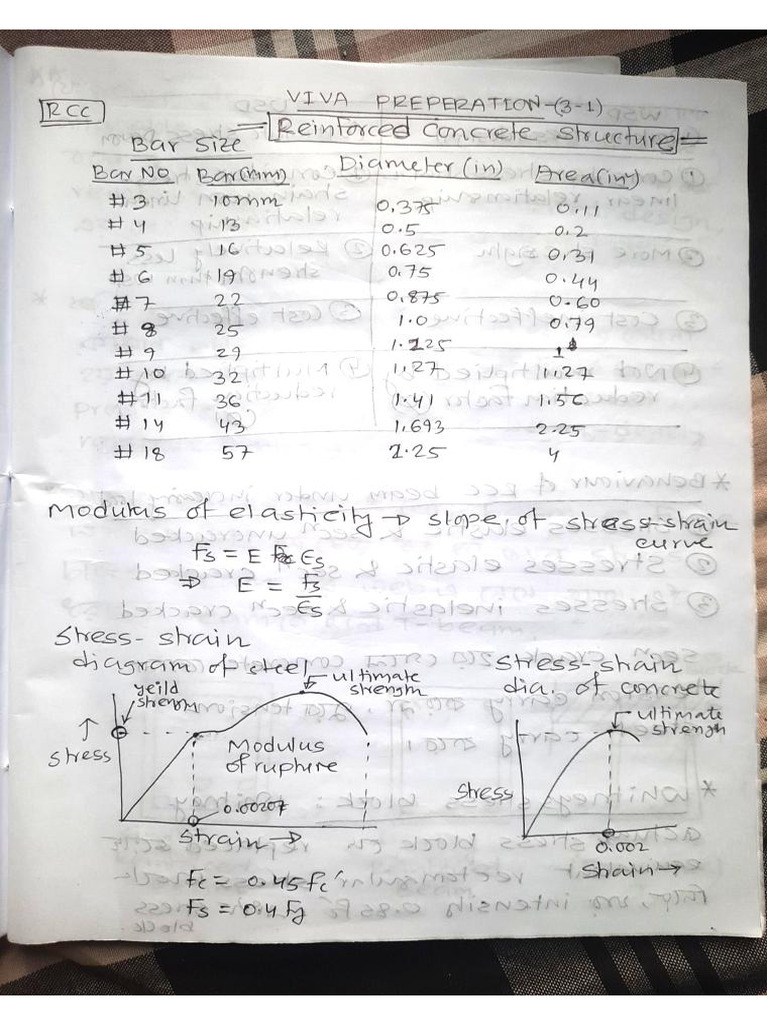 RCC
VIVA PREPERATION-(3-1)
Reinforced Concrete Structure
Bar Size
Bar No Bar(mm) Diameter (in) Area(in²)
#3 10mm 0.375 0.11
#4 13 0.5 0.2
#5 16 0.625 0.31
#6 19 0.75 0.44
#7 22 0.875 0.60
#8 25 1.0 0.79
#9 29 1.125 1
#10 32 1.27 1.27
#11 36 1.41 1.56
#14 43 1.693 2.25
#18 57 2.25 4
Modulus of elasticity → slope of stress-strain
curve
Fs = E εs
⇒ E = Fs/εs
Stress-strain
diagram of steel
yeild
strength
ultimate
strength
Stress
Modulus
of rupture
0.00207
Strain →
Stress-strain
dia. of concrete
ultimate
strength
Stress
0.002
Strain →
Fc = 0.45fc'
Fs = 0.4Fy